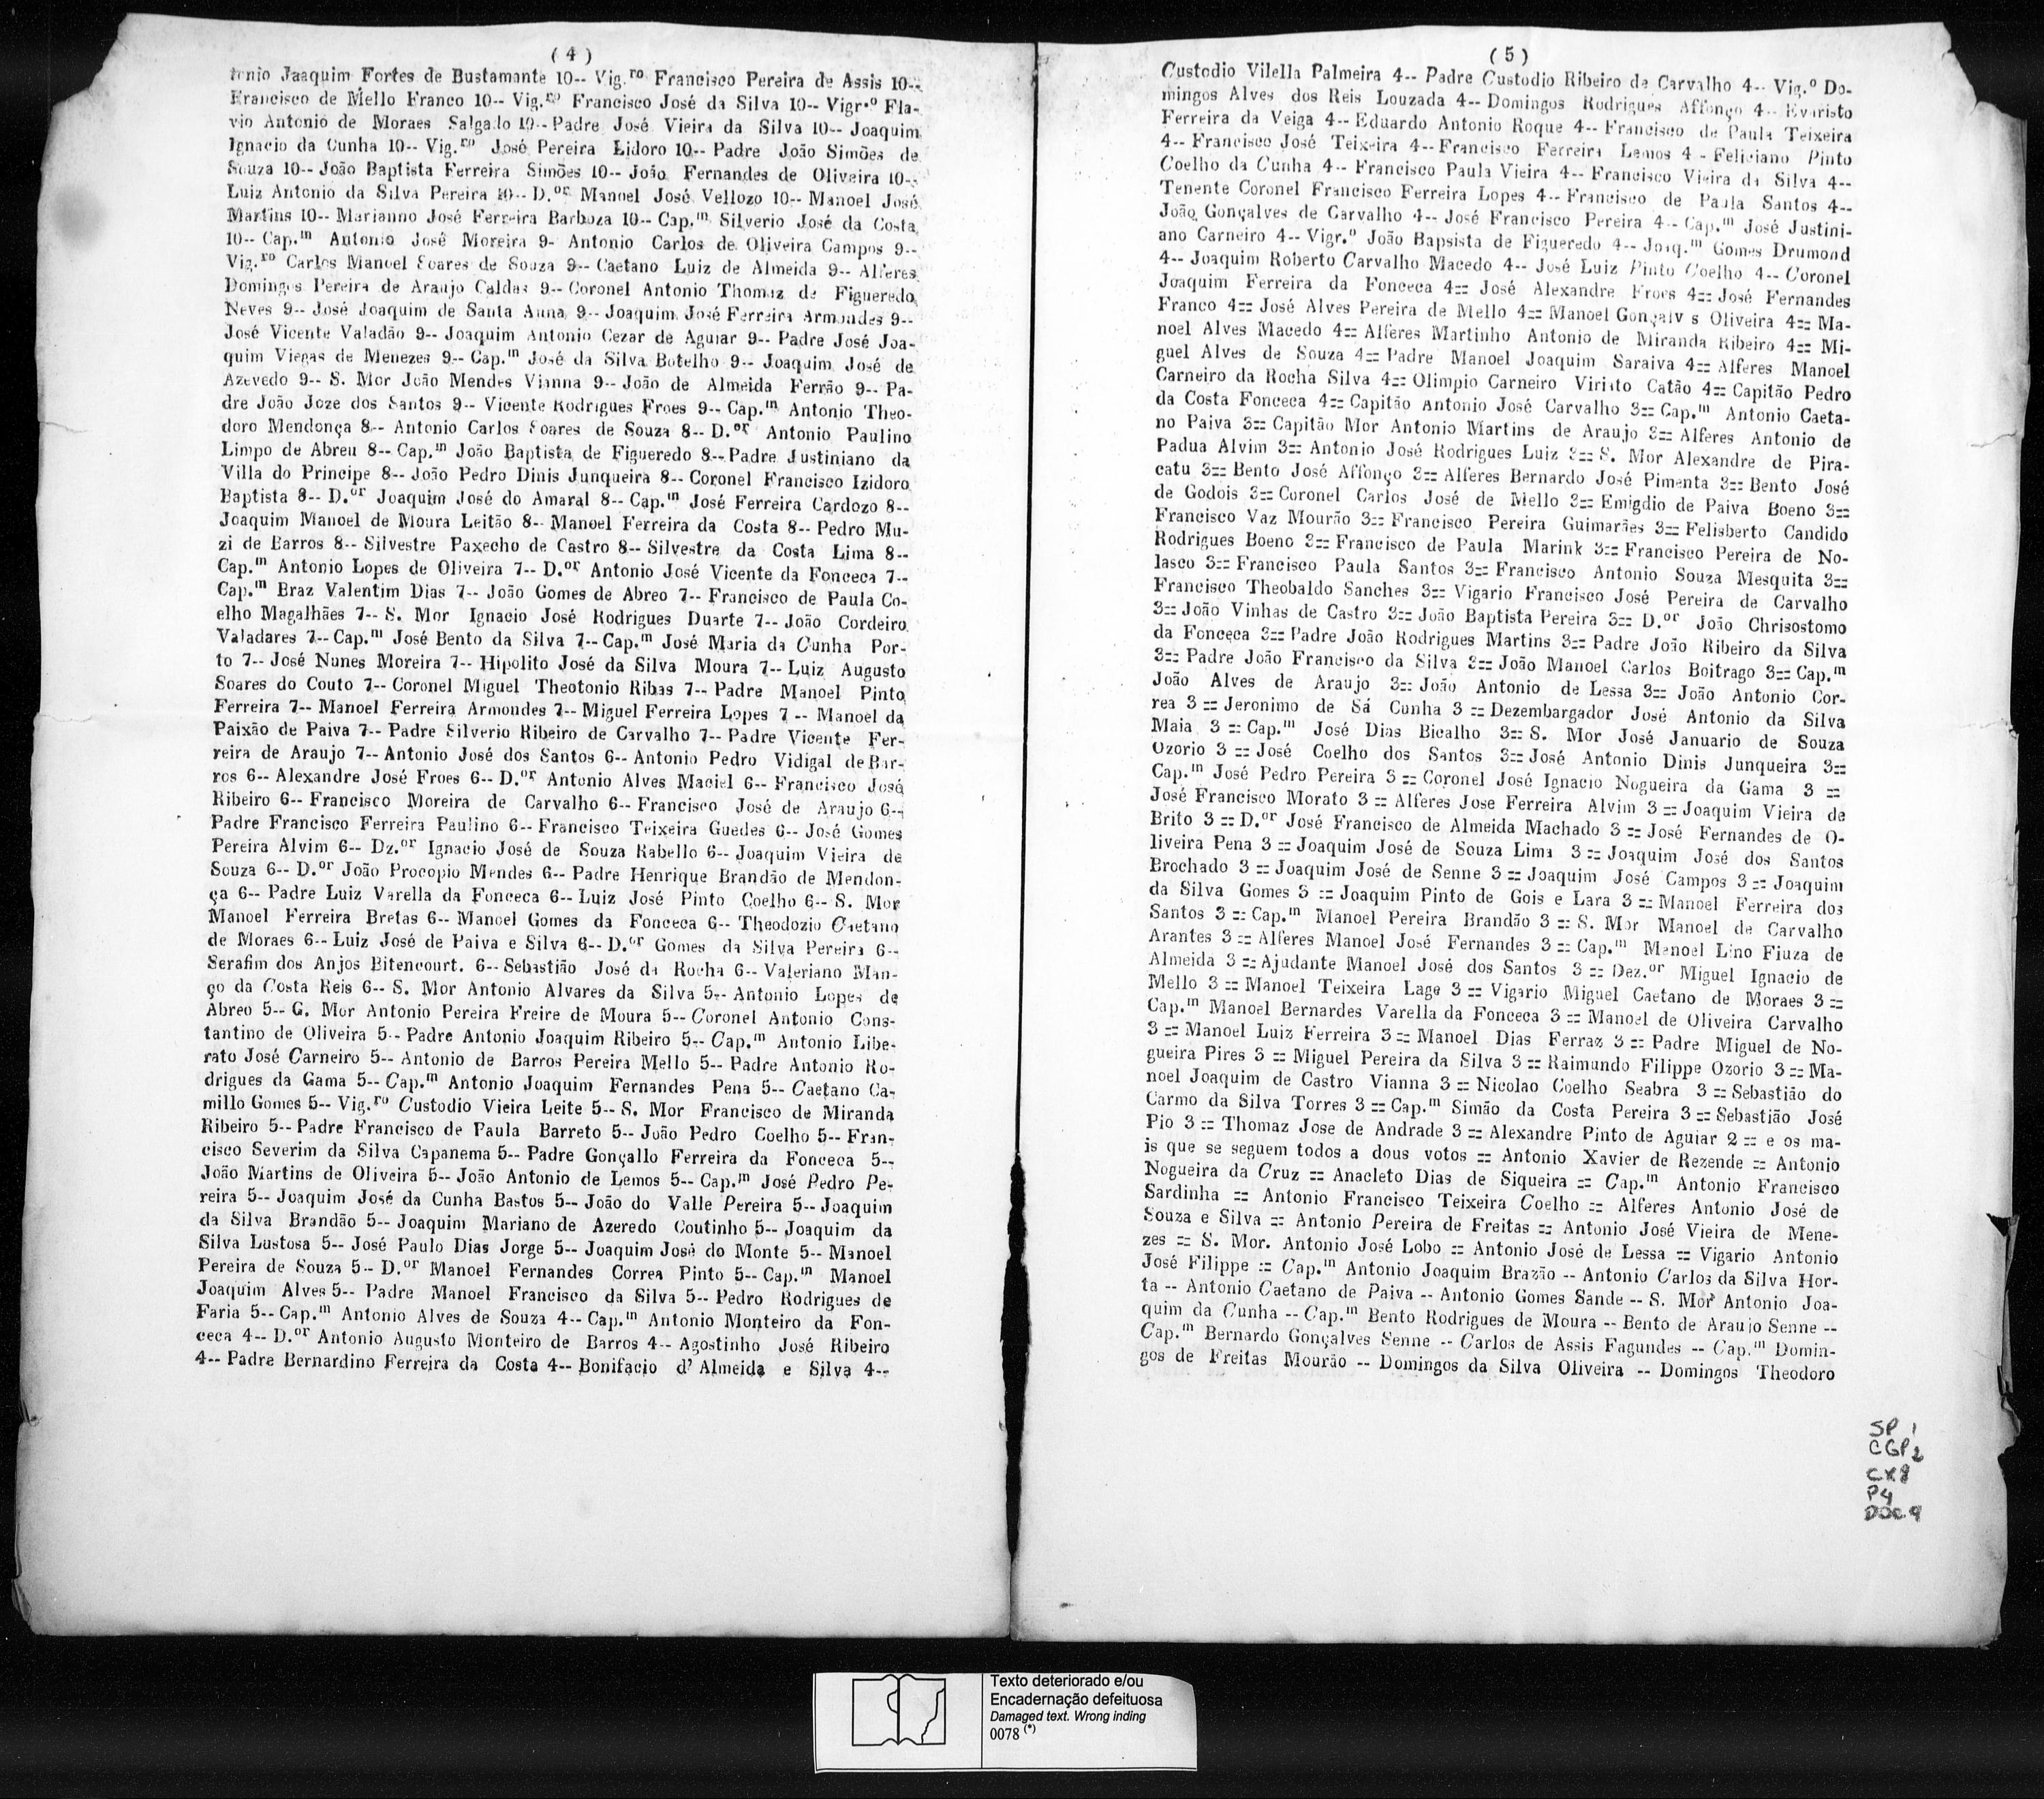 ( 4 )
tonio Jaaquim Fortes de Bustamante 10-- Vig.ro Francisco Pereira de Assis 10--
Francisco de Mello Franco 10-- Vig.ro Francisco José da Silva 10-- Vigr.o Fla-
vio Antonio de Moraes Salgado 10-- Padre José Vieira da Silva 10-- Joaquim
Ignacio da Cunha 10-- Vig.ro José Pereira Lidoro 10-- Padre João Simões de
Souza 10-- João Baptista Ferreira Simões 10-- João Fernandes de Oliveira 10--
Luiz Antonio da Silva Pereira 10-- D.or Manoel José Vellozo 10-- Manoel José
Martins 10-- Marianno José Ferreira Barboza 10-- Cap.m Silverio José da Costa
10-- Cap.m Antonio José Moreira 9- Antonio Carlos de Oliveira Campos 9--
Vig.ro Carlos Manoel Soares de Souza 9-- Caetano Luiz de Almeida 9-- Alferes
Domingos Pereira de Araujo Caldas 9-- Coronel Antonio Thomaz de Figueredo
Neves 9-- José Joaquim de Santa Anna 9-- Joaquim José Ferreira Armondes 9--
José Vicente Valadão 9-- Joaquim Antonio Cezar de Aguiar 9-- Padre José Joa-
quim Viegas de Menezes 9-- Cap.m José da Silva Botelho 9-- Joaquim José de
Azevedo 9-- S. Mor João Mendes Vianna 9-- João de Almeida Ferrão 9-- Pa-
dre João Joze dos Santos 9-- Vicente Rodrigues Froes 9-- Cap.m Antonio Theo-
doro Mendonça 8-- Antonio Carlos Soares de Souza 8-- D.or Antonio Paulino
Limpo de Abreu 8-- Cap.m João Baptista de Figueredo 8-- Padre Justiniano da
Villa do Principe 8-- João Pedro Dinis Junqueira 8-- Coronel Francisco Izidoro
Baptista 8-- D.or Joaquim José do Amaral 8-- Cap.m José Ferreira Cardozo 8--
Joaquim Manoel de Moura Leitão 8-- Manoel Ferreira da Costa 8-- Pedro Mu-
zi de Barros 8-- Silvestre Paxecho de Castro 8-- Silvestre da Costa Lima 8--
Cap.m Antonio Lopes de Oliveira 7-- D.or Antonio José Vicente da Fonceca 7--
Cap.m Braz Valentim Dias 7-- João Gomes de Abreo 7-- Francisco de Paula Co-
elho Magalhães 7-- S. Mor Ignacio José Rodrigues Duarte 7-- João Cordeiro
Valadares 7-- Cap.m José Bento da Silva 7-- Cap.m José Maria da Cunha Por-
to 7-- José Nunes Moreira 7-- Hipolito José da Silva Moura 7-- Luiz Augusto
Soares do Couto 7-- Coronel Miguel Theotonio Ribas 7-- Padre Manoel Pinto
Ferreira 7-- Manoel Ferreira Armondes 7-- Miguel Ferreira Lopes 7 -- Manoel da
Paixão de Paiva 7-- Padre Silverio Ribeiro de Carvalho 7-- Padre Vicente Fer-
reira de Araujo 7-- Antonio José dos Santos 6-- Antonio Pedro Vidigal de Bar-
ros 6-- Alexandre José Froes 6-- D.or Antonio Alves Maciel 6-- Francisco José
Ribeiro 6-- Francisco Moreira de Carvalho 6-- Francisco José de Araujo 6--
Padre Francisco Ferreira Paulino 6-- Francisco Teixeira Guedes 6-- José Gomes
Pereira Alvim 6-- Dz.or Ignacio José de Souza Rabello 6-- Joaquim Vieira de
Souza 6-- D.or João Procopio Mendes 6-- Padre Henrique Brandão de Mendon-
ça 6-- Padre Luiz Varella da Fonceca 6-- Luiz José Pinto Coelho 6-- S. Mor
Manoel Ferreira Bretas 6-- Manoel Gomes da Fonceca 6-- Theodozio Caetano
de Moraes 6-- Luiz José de Paiva e Silva 6-- D.or Gomes da Silva Pereira 6--
Serafim dos Anjos Bitencourt. 6-- Sebastião José da Rocha 6-- Valeriano Man-
ço da Costa Reis 6-- S. Mor Antonio Alvares da Silva 5-- Antonio Lopes de
Abreo 5-- G. Mor Antonio Pereira Freire de Moura 5-- Coronel Antonio Cons-
tantino de Oliveira 5-- Padre Antonio Joaquim Ribeiro 5-- Cap.m Antonio Libe-
rato José Carneiro 5-- Antonio de Barros Pereira Mello 5-- Padre Antonio Ro-
drigues da Gama 5-- Cap.m Antonio Joaquim Fernandes Pena 5-- Caetano Ca-
millo Gomes 5-- Vig.ro Custodio Vieira Leite 5-- S. Mor Francisco de Miranda
Ribeiro 5-- Padre Francisco de Paula Barreto 5-- João Pedro Coelho 5-- Fran-
cisco Severim da Silva Capanema 5-- Padre Gonçallo Ferreira da Fonceca 5--
João Martins de Oliveira 5-- João Antonio de Lemos 5-- Cap.m José Pedro Pe-
reira 5-- Joaquim José da Cunha Bastos 5-- João do Valle Pereira 5-- Joaquim
da Silva Brandão 5-- Joaquim Mariano de Azeredo Coutinho 5-- Joaquim da
Silva Lustosa 5-- José Paulo Dias Jorge 5-- Joaquim José do Monte 5-- Manoel
Pereira de Souza 5-- D.or Manoel Fernandes Correa Pinto 5-- Cap.m Manoel
Joaquim Alves 5-- Padre Manoel Francisco da Silva 5-- Pedro Rodrigues de
Faria 5-- Cap.m Antonio Alves de Souza 4-- Cap.m Antonio Monteiro da Fon-
ceca 4-- D.or Antonio Augusto Monteiro de Barros 4-- Agostinho José Ribeiro
4-- Padre Bernardino Ferreira da Costa 4-- Bonifacio d' Almeida e Silva 4--
( 5 )
Custodio Vilella Palmeira 4-- Padre Custodio Ribeiro de Carvalho 4-- Vig.o Do-
mingos Alves dos Reis Louzada 4-- Domingos Rodrigues Affonço 4-- Evaristo
Ferreira da Veiga 4-- Eduardo Antonio Roque 4-- Francisco de Paula Teixeira
4-- Francisco José Teixeira 4-- Francisco Ferreira Lemos 4 - Feliciano Pinto
Coelho da Cunha 4-- Francisco Paula Vieira 4-- Francisco Vieira da Silva 4--
Tenente Coronel Francisco Ferreira Lopes 4-- Francisco de Paula Santos 4--
João Gonçalves de Carvalho 4-- José Francisco Pereira 4-- Cap.m José Justini-
ano Carneiro 4-- Vigr.o João Bapsista de Figueredo 4-- Joaq.m Gomes Drumond
4-- Joaquim Roberto Carvalho Macedo 4-- José Luiz Pinto Coelho 4-- Coronel
Joaquim Ferreira da Fonceca 4== José Alexandre Froes 4== José Fernandes
Franco 4== José Alves Pereira de Mello 4== Manoel Gonçalv s Oliveira 4== Ma-
noel Alves Macedo 4== Alferes Martinho Antonio de Miranda Ribeiro 4== Mi-
guel Alves de Souza 4== Padre Manoel Joaquim Saraiva 4== Alferes Manoel
Carneiro da Rocha Silva 4== Olimpio Carneiro Viriato Catão 4== Capitão Pedro
da Costa Fonceca 4== Capitão Antonio José Carvalho 3== Cap.m Antonio Caeta-
no Paiva 3== Capitão Mor Antonio Martins de Araujo 3== Alferes Antonio de
Padua Alvim 3== Antonio José Rodrigues Luiz 3== S. Mor Alexandre de Pira-
catu 3== Bento José Affonço 3== Alferes Bernardo José Pimenta 3== Bento José
de Godois 3== Coronel Carlos José de Mello 3== Emigdio de Paiva Boeno 3==
Francisco Vaz Mourão 3== Francisco Pereira Guimarães 3== Felisberto Candido
Rodrigues Boeno 3== Francisco de Paula Marink 3== Francisco Pereira de No-
lasco 3== Francisco Paula Santos 3== Francisco Antonio Souza Mesquita 3==
Francisco Theobaldo Sanches 3== Vigario Francisco José Pereira de Carvalho
3== João Vinhas de Castro 3== João Baptista Pereira 3== D.or João Chrisostomo
da Fonceca 3== Padre João Rodrigues Martins 3== Padre João Ribeiro da Silva
3== Padre João Francisco da Silva 3== João Manoel Carlos Boitrago 3== Cap.m
João Alves de Araujo 3== João Antonio de Lessa 3== João Antonio Cor-
rea 3 == Jeronimo de Sá Cunha 3 == Dezembargador José Antonio da Silva
Maia 3 == Cap.m José Dias Bicalho 3== S. Mor José Januario de Souza
Ozorio 3 == José Coelho dos Santos 3== José Antonio Dinis Junqueira 3==
Cap.m José Pedro Pereira 3 == Coronel José Ignacio Nogueira da Gama 3 ==
José Francisco Morato 3 == Alferes Jose Ferreira Alvim 3 == Joaquim Vieira de
Brito 3 == D.or José Francisco de Almeida Machado 3 == José Fernandes de O-
liveira Pena 3 == Joaquim José de Souza Lima 3 == Joaquim José dos Santos
Brochado 3 == Joaquim José de Senne 3 == Joaquim José Campos 3 == Joaquim
da Silva Gomes 3 == Joaquim Pinto de Gois e Lara 3 == Manoel Ferreira dos
Santos 3 == Cap.m Manoel Pereira Brandão 3 == S. Mor Manoel de Carvalho
Arantes 3 == Alferes Manoel José Fernandes 3 == Cap.m Manoel Lino Fiuza de
Almeida 3 == Ajudante Manoel José dos Santos 3 == Dez.or Miguel Ignacio de
Mello 3 == Manoel Teixeira Lage 3 == Vigario Miguel Caetano de Moraes 3 ==
Cap.m Manoel Bernardes Varella da Fonceca 3 == Manoel de Oliveira Carvalho
3 == Manoel Luiz Ferreira 3 == Manoel Dias Ferraz 3 == Padre Miguel de No-
gueira Pires 3 == Miguel Pereira da Silva 3 == Raimundo Filippe Ozorio 3 == Ma-
noel Joaquim de Castro Vianna 3 == Nicolao Coelho Seabra 3 == Sebastião do
Carmo da Silva Torres 3 == Cap.m Simão da Costa Pereira 3 == Sebastião José
Pio 3 == Thomaz Jose de Andrade 3 == Alexandre Pinto de Aguiar 2 == e os ma-
is que se seguem todos a dous votos == Antonio Xavier de Rezende == Antonio
Nogueira da Cruz == Anacleto Dias de Siqueira == Cap.m Antonio Francisco
Sardinha == Antonio Francisco Teixeira Coelho == Alferes Antonio José de
Souza e Silva == Antonio Pereira de Freitas == Antonio José Vieira de Mene-
zes == S. Mor. Antonio José Lobo == Antonio José de Lessa == Vigario Antonio
José Filippe == Cap.m Antonio Joaquim Brazão -- Antonio Carlos da Silva Hor-
ta -- Antonio Caetano de Paiva -- Antonio Gomes Sande -- S. Mor Antonio Joa-
quim da Cunha -- Cap.m Bento Rodrigues de Moura -- Bento de Araujo Senne --
Cap.m Bernardo Gonçalves Senne -- Carlos de Assis Fagundes -- Cap.m Domin-
gos de Freitas Mourão -- Domingos da Silva Oliveira -- Domingos Theodoro
SP 1
CGP 2
CX 8
P4
DOC. 9
Texto deteriorado e/ou
Encadernação defeituosa
Damaged text. Wrong inding
0078 (*)